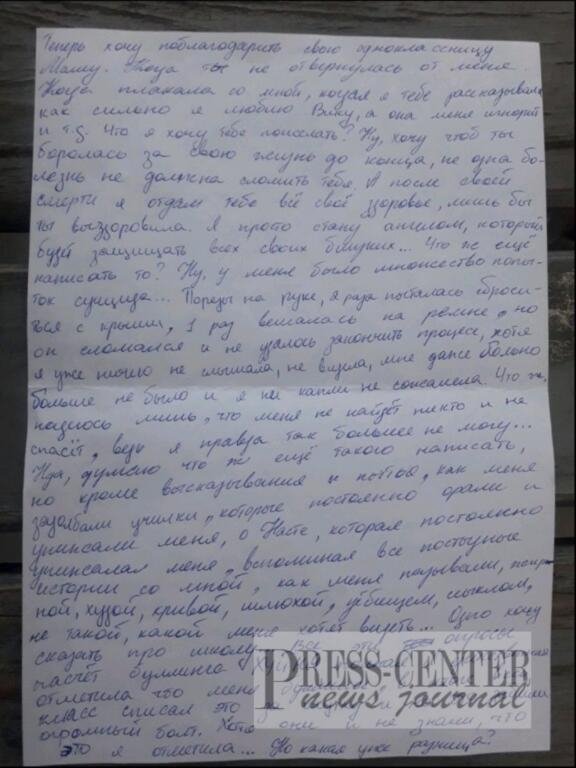 Теперь хочу поблагодарить свою одноклассницу
Машу. Тогда ты не отвернулась от меня.
Когда плакала со мной, когда я тебе рассказывала
как сильно я люблю Вику, а она меня игнорит
и т.д. Что я хочу тебе пожелать? Ну, хочу чтоб ты
боролась за свою жизнь до конца, не одна бо-
лезнь не должна сломить тебя. А после своей
смерти я отдам тебе всё своё здоровье, лишь бы
ты выздоровила. Я просто стану ангелом, который
будет защищать всех своих близких... Что же ещё
написать то? Ну, у меня было множество попы-
ток суицида... Порезы на руке, раза пыталась сброси-
ться с крыши, 1 раз вешалась на ремне, но
он сломался и не удалось закончить процесс, хотя
я уже ничего не слышала, не видела, мне даже больно
больше не было и я ни капли не сожалела. Что ж,
надеюсь лишь, что меня не найдёт никто и не
спасёт, ведь я правда так больше не могу...
Нда, думаю что ж ещё такого написать,
но кроме высказывания о как меня
задолбали училки, которые постоянно орали и
унижали меня, о Насте, которая постоянно
унижала меня, вспоминая все постыдные
истории со мной, как меня называли,
худой, кривой, шлюхой, уёбищем,
не такой, какой меня хотят видеть... Одно хочу
сказать про школу. Все эти опросы
насчёт буллинга
отметила что меня
класс списал это за
огромный болт. Хотя они и не знали, что
это я отметила... Но какая уже разница?
PRESS-CENTER
news journal